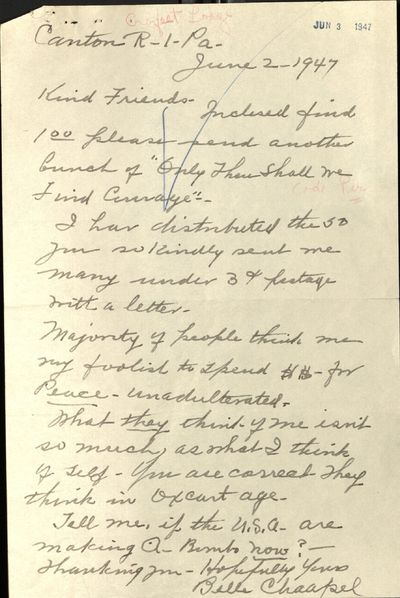 JUN 3 1947
Canton R-1-Pa-
June 2-1947
Kind Friends- Inclosed find
1⁰⁰ please send another
bunch of "Only Then Shall We
Find Courage"-
I hav distributed the 50
you so kindly sent me
many under 3¢ postage
with a letter-
Majority of people think me
very foolish to spend $$- for
Peace- unadulterated-
What they think of me isn't
so much, as what I think
of self- You are correct they
think in Oxcart age-
Tell me, if the U.S.A- are
making A- Bombs now?-
Thanking you- Hopefully Yours
Belle Chaapel